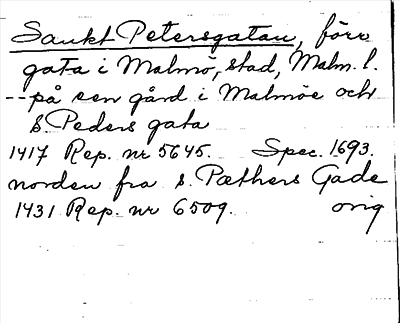 Sankt Petersgatan, förr
gata i Malmö, stad, Malm. l.
-- på een gård i Malmöe och
S. Peders gata
1417 Rep. nr 5645. Spec. 1693.
norden fra s. Pæthers Gade
1431 Rep. nr 6509. orig